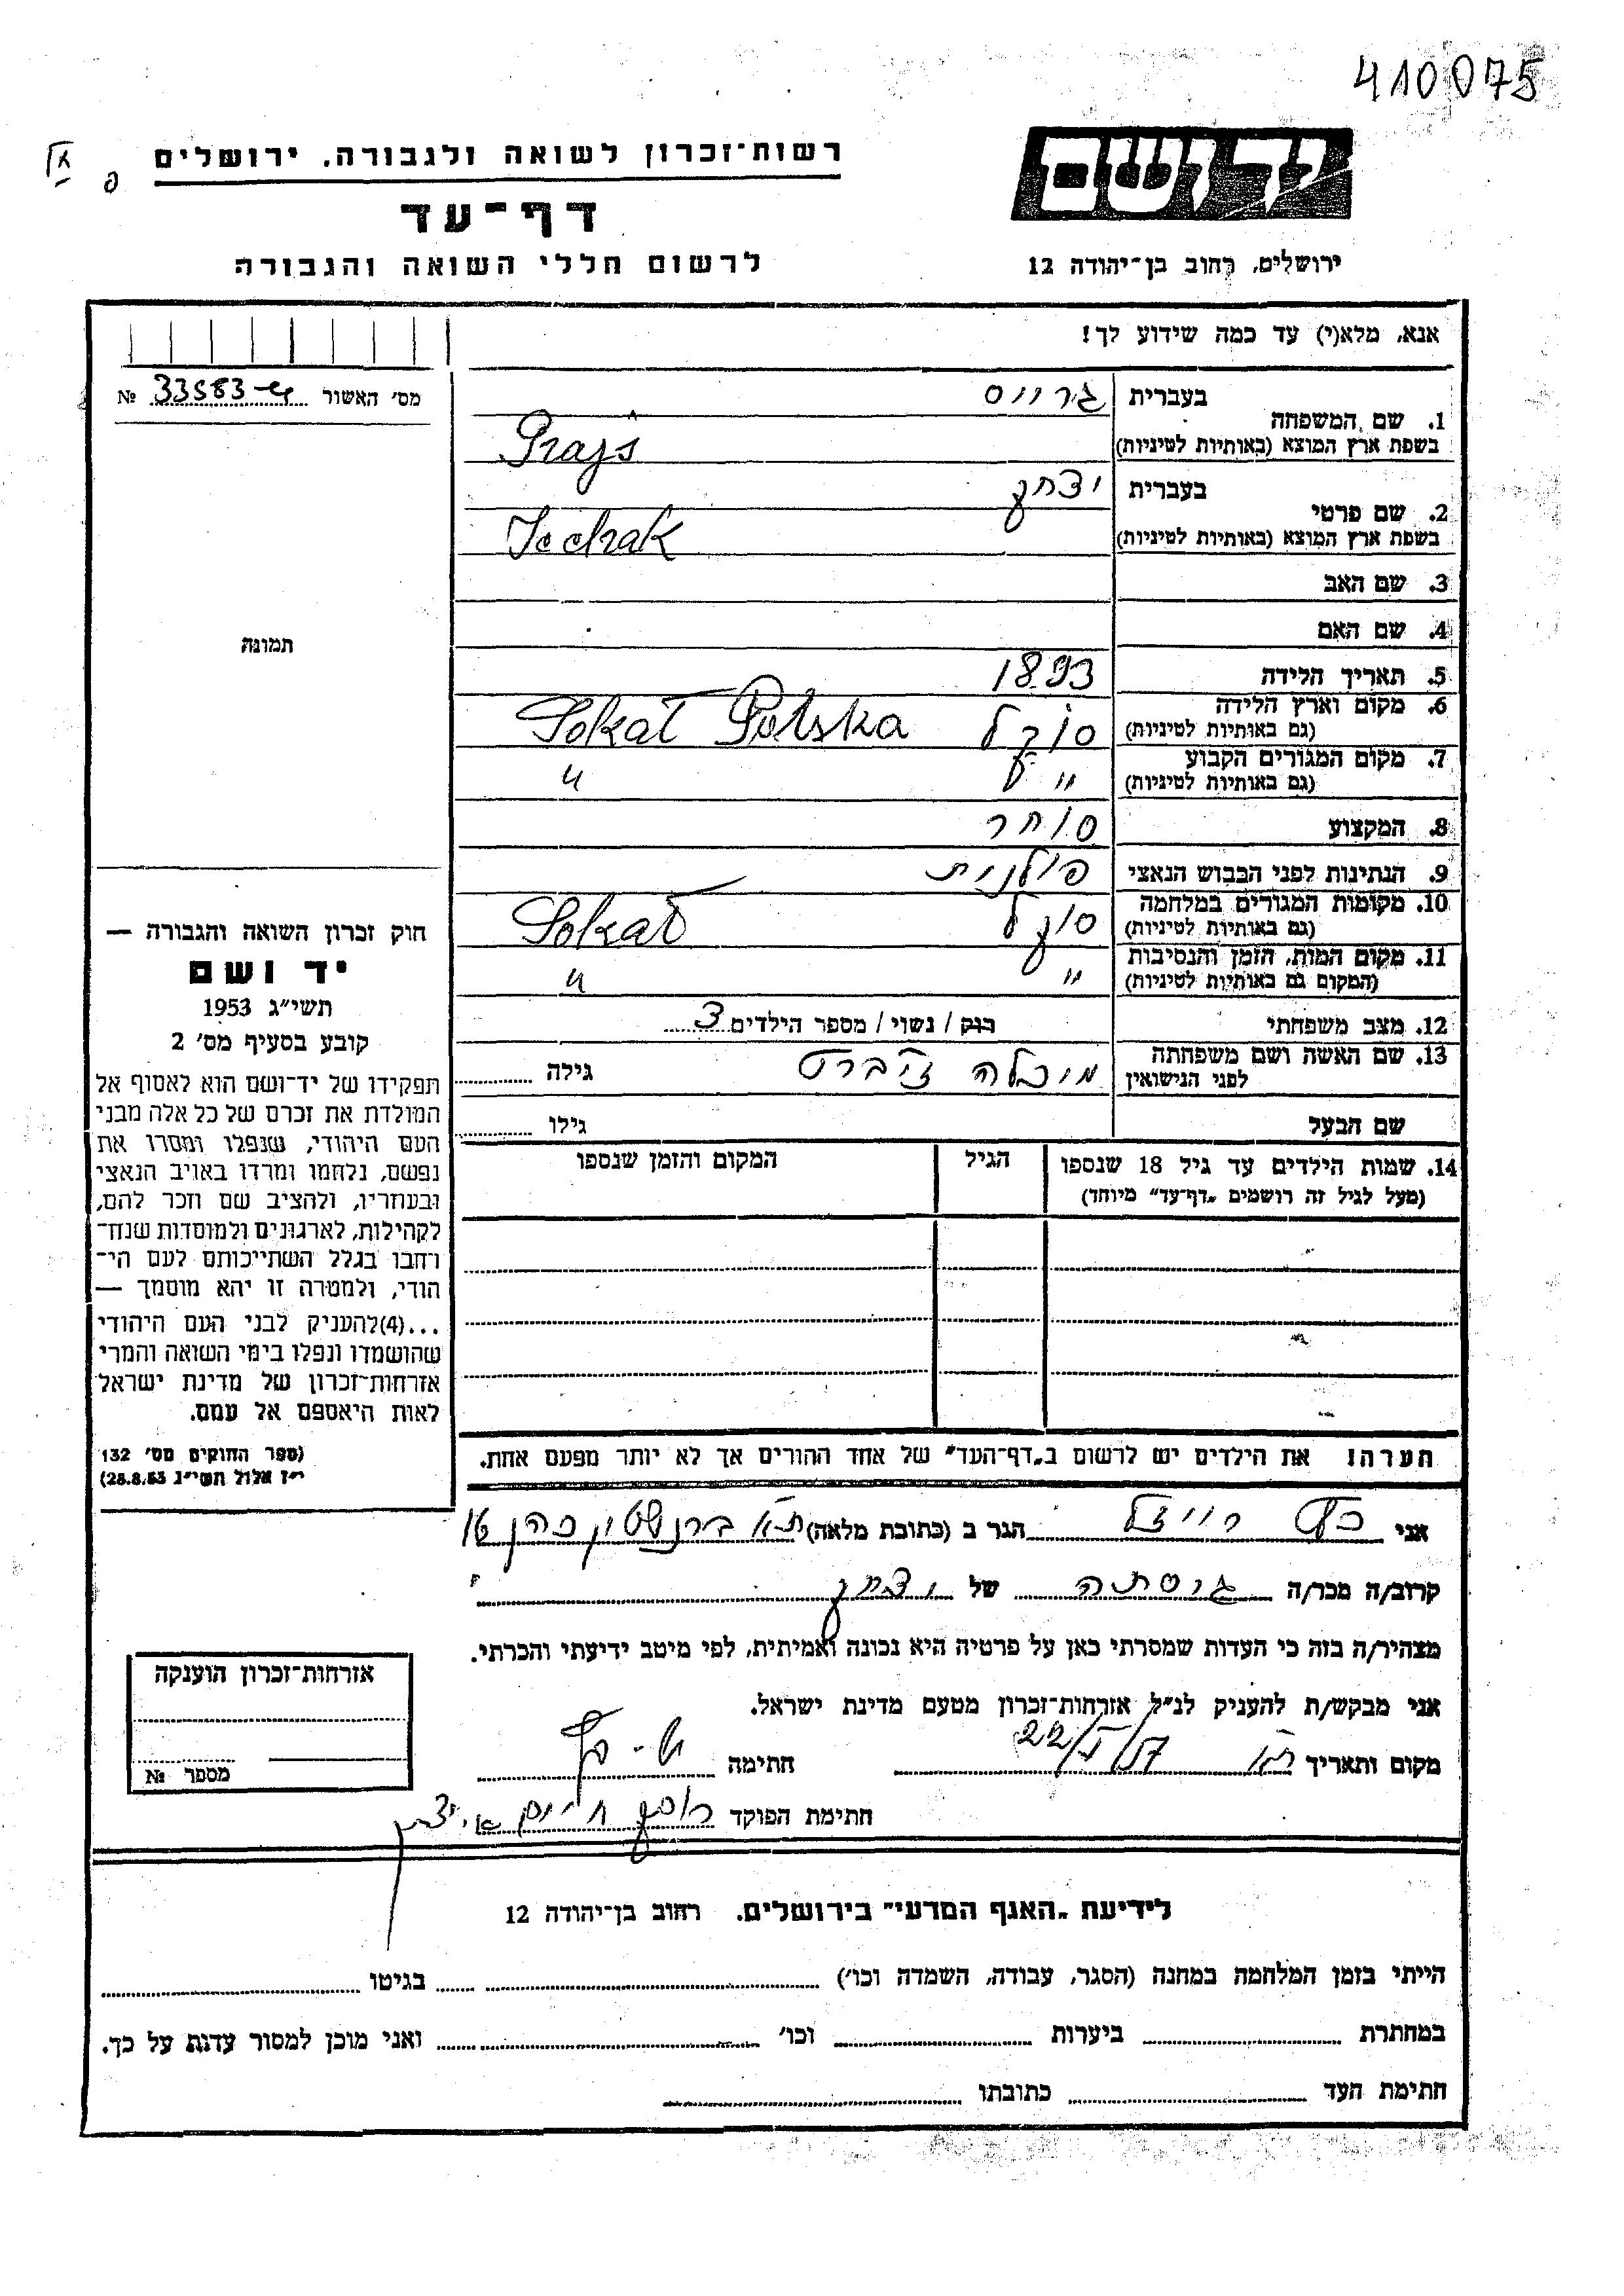 410075
יד ושם
רשות־זכרון לשואה ולגבורה. ירושלים
דף־עד
לרשום חללי השואה והגבורה
ירושלים, רחוב בן־יהודה 12
אנא, מלא(י) עד כמה שידוע לך!
מס׳ האשור 33583 №
תמונה
חוק זכרון השואה והגבורה —
יד ושם
תשי״ג 1953
קובע בסעיף מס׳ 2
תפקידו של יד־ושם הוא לאסוף אל
המולדת את זכרם של כל אלה מבני
העם היהודי, שנפלו ומסרו את
נפשם, נלחמו ומרדו באויב הנאצי
ובעוזריו, ולהציב שם וזכר להם,
לקהילות, לארגונים ולמוסדות שנח־
רחבו בגלל השתייכותם לעם הי־
הודי, ולמטרה זו יהא מוסמך —
...(4)להעניק לבני העם היהודי
שהושמדו ונפלו בימי השואה והמרי
אזרחות־זכרון של מדינת ישראל
לאות היאספם אל עמם.
(ספר החוקים מס׳ 132
י״ז אלול תשי״ג 28.8.53)
1. שם המשפחה
בעברית
בשפת ארץ המוצא (באותיות לטיניות) Prajs
2. שם פרטי
בעברית יצחק
בשפת ארץ המוצא (באותיות לטיניות) Icchak
3. שם האב
4. שם האם
5. תאריך הלידה 1893
6. מקום וארץ הלידה סוקל Sokal Polska
(גם באותיות לטיניות)
7. מקום המגורים הקבוע " "
(גם באותיות לטיניות)
8. המקצוע סוחר
9. הנתינות לפני הכבוש הנאצי פולנית
10. מקומות המגורים במלחמה סוקל Sokal
(גם באותיות לטיניות)
11. מקום המות, הזמן והנסיבות " "
(המקום גם באותיות לטיניות)
12. מצב משפחתי רוק / נשוי / מספר הילדים 3
13. שם האשה ושם משפחתה גילה
לפני הנישואין
שם הבעל גילו
14. שמות הילדים עד גיל 18 שנספו הגיל המקום והזמן שנספו
(מעל לגיל זה רושמים „דף־עד״ מיוחד)
הערה! את הילדים יש לרשום ב„דף־העד״ של אחד ההורים אך לא יותר מפעם אחת.
אני כץ רייזל הגר ב (כתובת מלאה) ת״א ברנשטין כהן 16
קרוב/ה מכר/ה גיסתה של יצחק
מצהיר/ה בזה כי העדות שמסרתי כאן על פרטיה היא נכונה ואמיתית, לפי מיטב ידיעתי והכרתי.
אני מבקש/ת להעניק לנ״ל אזרחות־זכרון מטעם מדינת ישראל.
מקום ותאריך ת״א 22/V/57 חתימה
חתימת הפוקד
אזרחות־זכרון הוענקה
מספר №
לידיעת „האגף המדעי״ בירושלים. רחוב בן־יהודה 12
הייתי בזמן המלחמה במחנה (הסגר, עבודה, השמדה וכו׳) בגיטו
במחתרת ביערות וכו׳ ואני מוכן למסור עדות על כך.
חתימת העד כתובתו